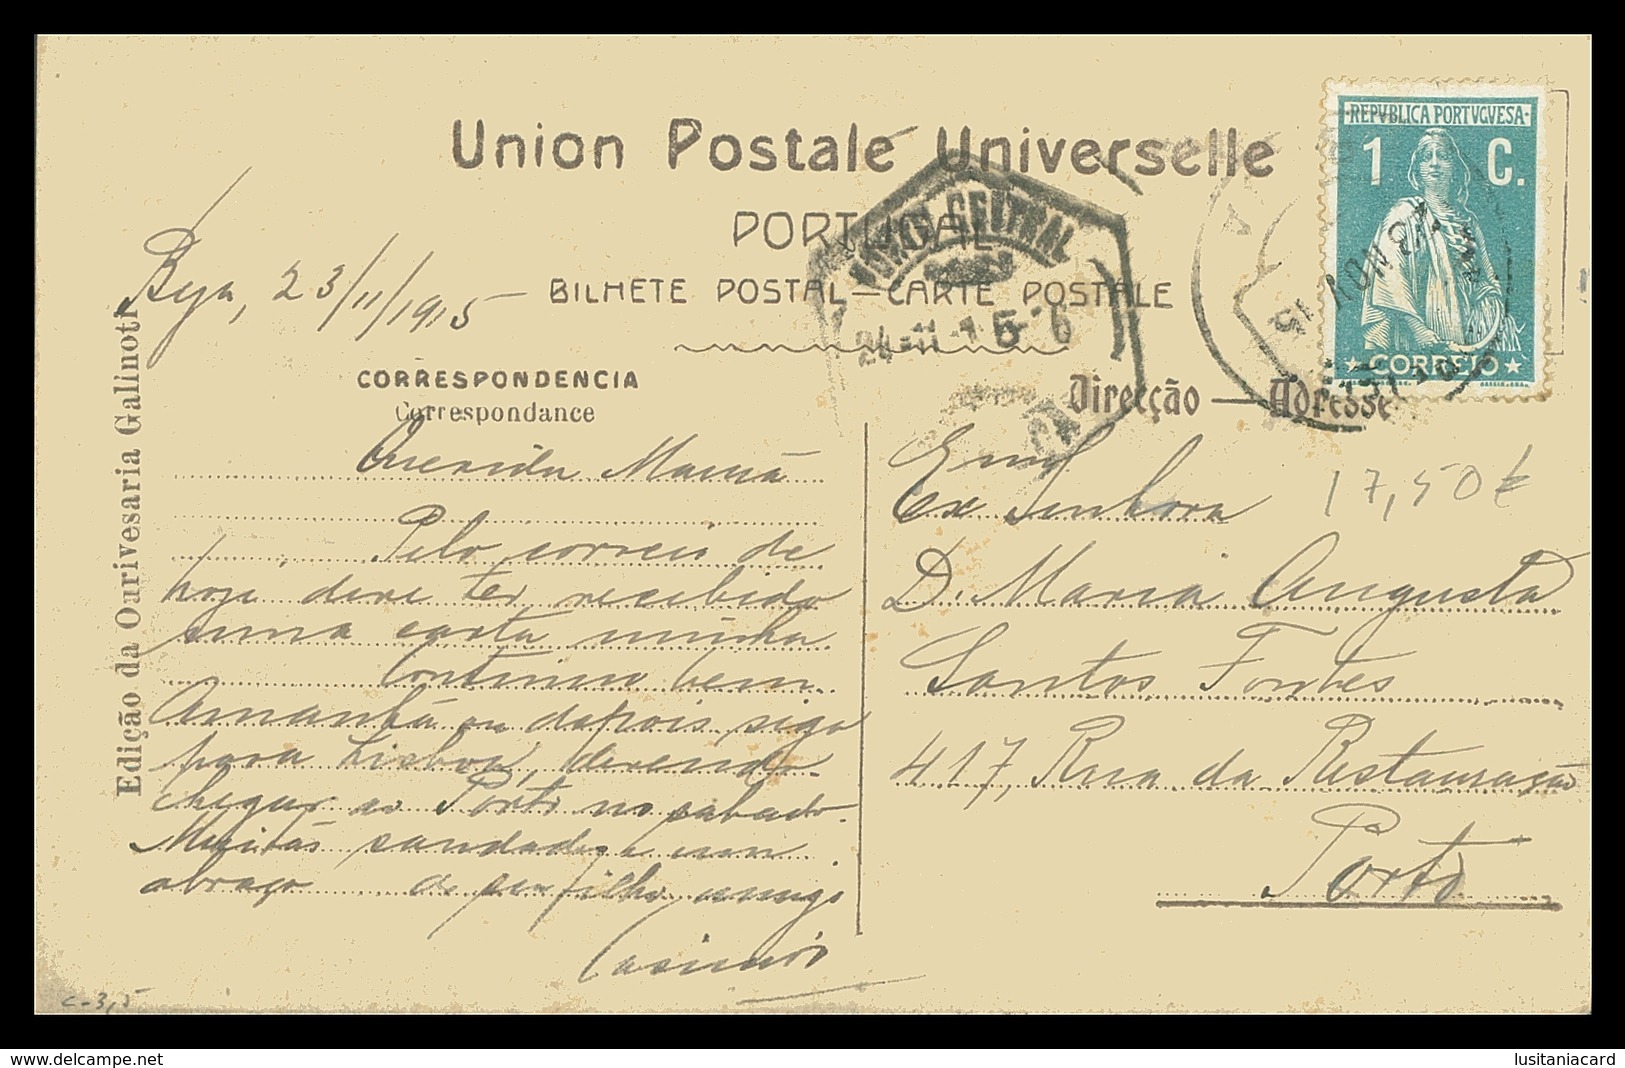 Union Postale Universelle
PORTUGAL
BILHETE POSTAL — CARTE POSTALE
REPVBLICA PORTVGVESA
1 C.
CORREIO
CENTRAL
24-11-15-6
23 NOV 15
Beja, 23/11/1915
CORRESPONDENCIA
Correspondance
Direcção — Adresse
Edição da Ourivesaria Galinoti
Querida Mamã
Pelo correio de
hoje deve ter recebido
uma carta minha
Continuo bem
Amanhã ou depois sigo
para Lisboa, devendo
chegar ao Porto no sabado.
Muitas saudades e um
abraço de seu filho amigo
Casimiro
Exma Senhora
D. Maria Augusta
Santos Fontes
417, Rua da Restauração
Porto
17,50€
c-3,5
www.delcampe.net
lusitaniacard